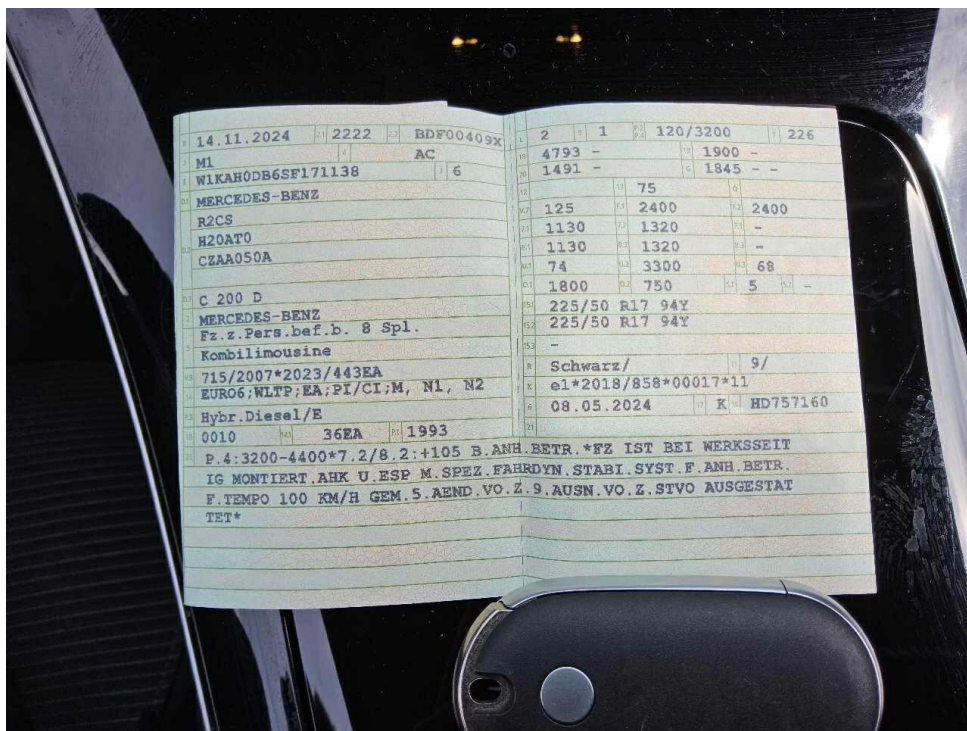 B 14.11.2024 2.1 2222 2.2 BDF00409X
J M1 4 AC
E W1KAH0DB6SF171138 3 6
D.1 MERCEDES-BENZ
R2CS
D.2 H20AT0
CZAA050A
D.3 C 200 D
2 MERCEDES-BENZ
5 Fz.z.Pers.bef.b. 8 Spl.
Kombilimousine
V.9 715/2007*2023/443EA
14 EURO6;WLTP;EA;PI/CI;M, N1, N2
P.3 Hybr.Diesel/E
10 0010 14.1 36EA P.1 1993
L 2 9 1 P.2 P.4 120/3200 T 226
18 4793 - 19 1900 -
20 1491 - G 1845 - -
12 13 75 Q
V.7 125 F.1 2400 F.2 2400
7.1 1130 7.2 1320 7.3 -
8.1 1130 8.2 1320 8.3 -
U.1 74 U.2 3300 U.3 68
O.1 1800 O.2 750 S.1 5 S.2 -
15.1 225/50 R17 94Y
15.2 225/50 R17 94Y
15.3 -
R Schwarz/ 11 9/
K e1*2018/858*00017*11
6 08.05.2024 17 K 16 HD757160
21
22 P.4:3200-4400*7.2/8.2:+105 B.ANH.BETR.*FZ IST BEI WERKSSEIT
IG MONTIERT.AHK U.ESP M.SPEZ.FAHRDYN.STABI.SYST.F.ANH.BETR.
F.TEMPO 100 KM/H GEM.5.AEND.VO.Z.9.AUSN.VO.Z.STVO AUSGESTAT
TET*